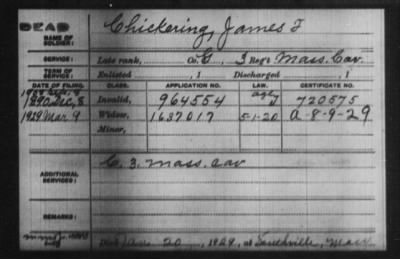 DEAD
NAME OF SOLDIER:
Chickering, James F
SERVICE:
Late rank, Co. G, 3 Reg't Mass. Cav.
TERM OF SERVICE:
Enlisted , 1
Discharged , 1
DATE OF FILING.
CLASS.
APPLICATION NO.
LAW.
CERTIFICATE NO.
1890 Dec, 8
Invalid,
964554
720575
1929 Mar 9
Widow,
1637017
5-1-20
A-8-9-29
Minor,
ADDITIONAL SERVICES:
C. 3. Mass. Cav
REMARKS:
Died Jan. 20, 1929, at Southville, Mass